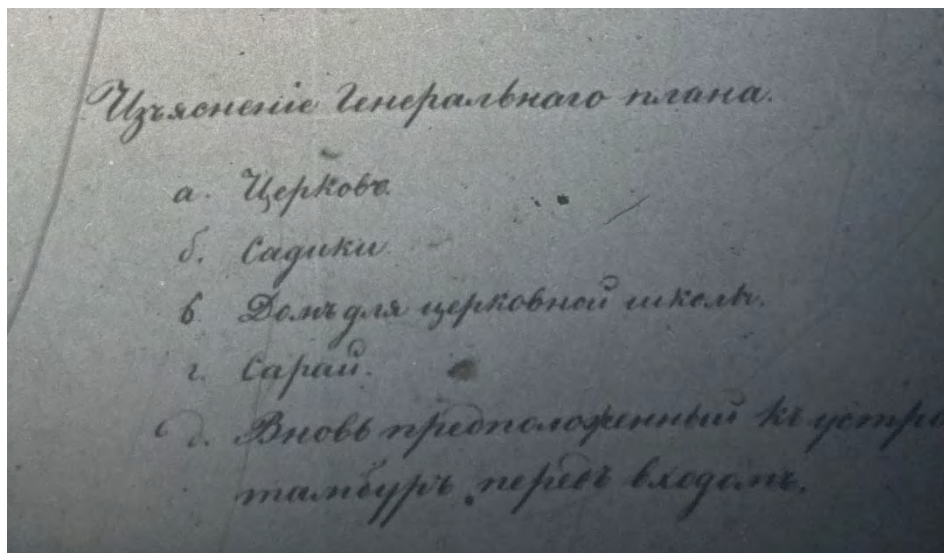 Изъясненіе Генеральнаго плана.
а. Церковь.
б. Садики
в Домъ для церковной школы.
г. Сарай.
д. Вновь предположенный къ устро
тамбуръ передъ входомъ.